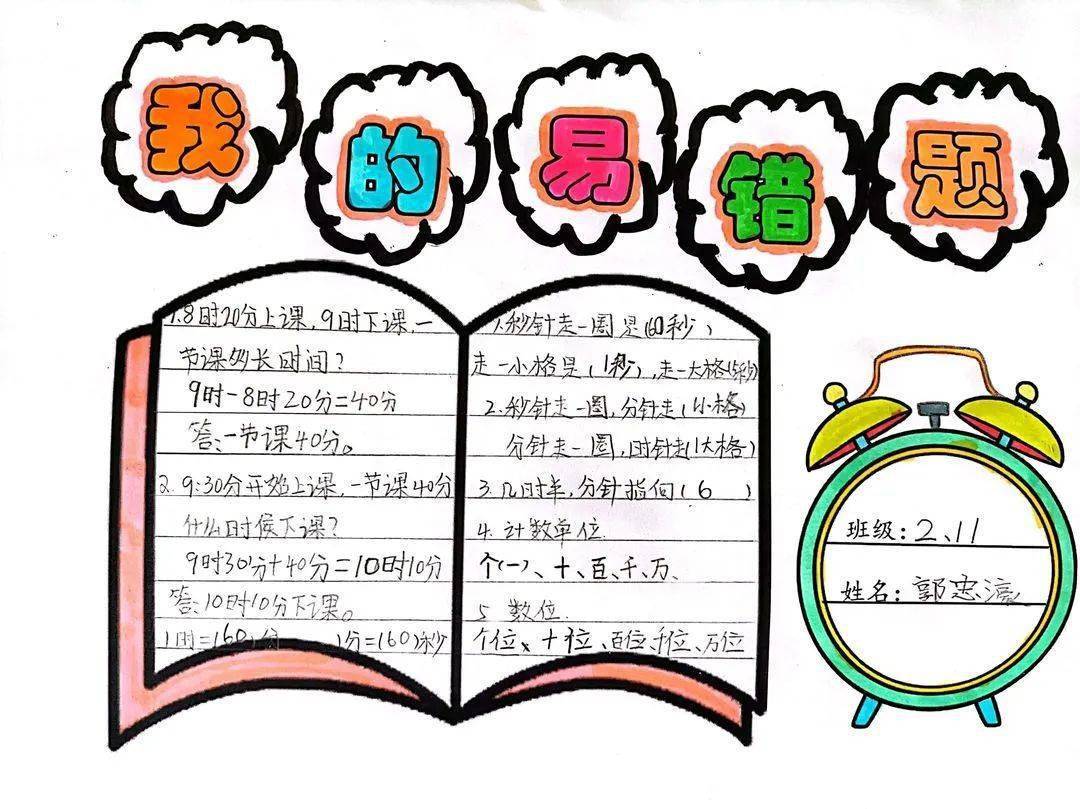 我的易错题
1.8时20分上课,9时下课,一
节课多长时间?
9时-8时20分=40分
答:一节课40分。
2.9:30分开始上课,一节课40分
什么时候下课?
9时30分+40分=10时10分
答:10时10分下课。
1时=(60)分 1分=(60)秒
1.秒针走一圈是(60秒)
走一小格是(1秒),走一大格(5秒)
2.秒针走一圈,分针走(1小格)
分针走一圈,时针走(1大格)
3.几时半,分针指向(6)
4.计数单位.
个(一)、十、百、千、万、
5 数位.
个位、十位、百位、千位、万位
班级:2、11
姓名:郭忠